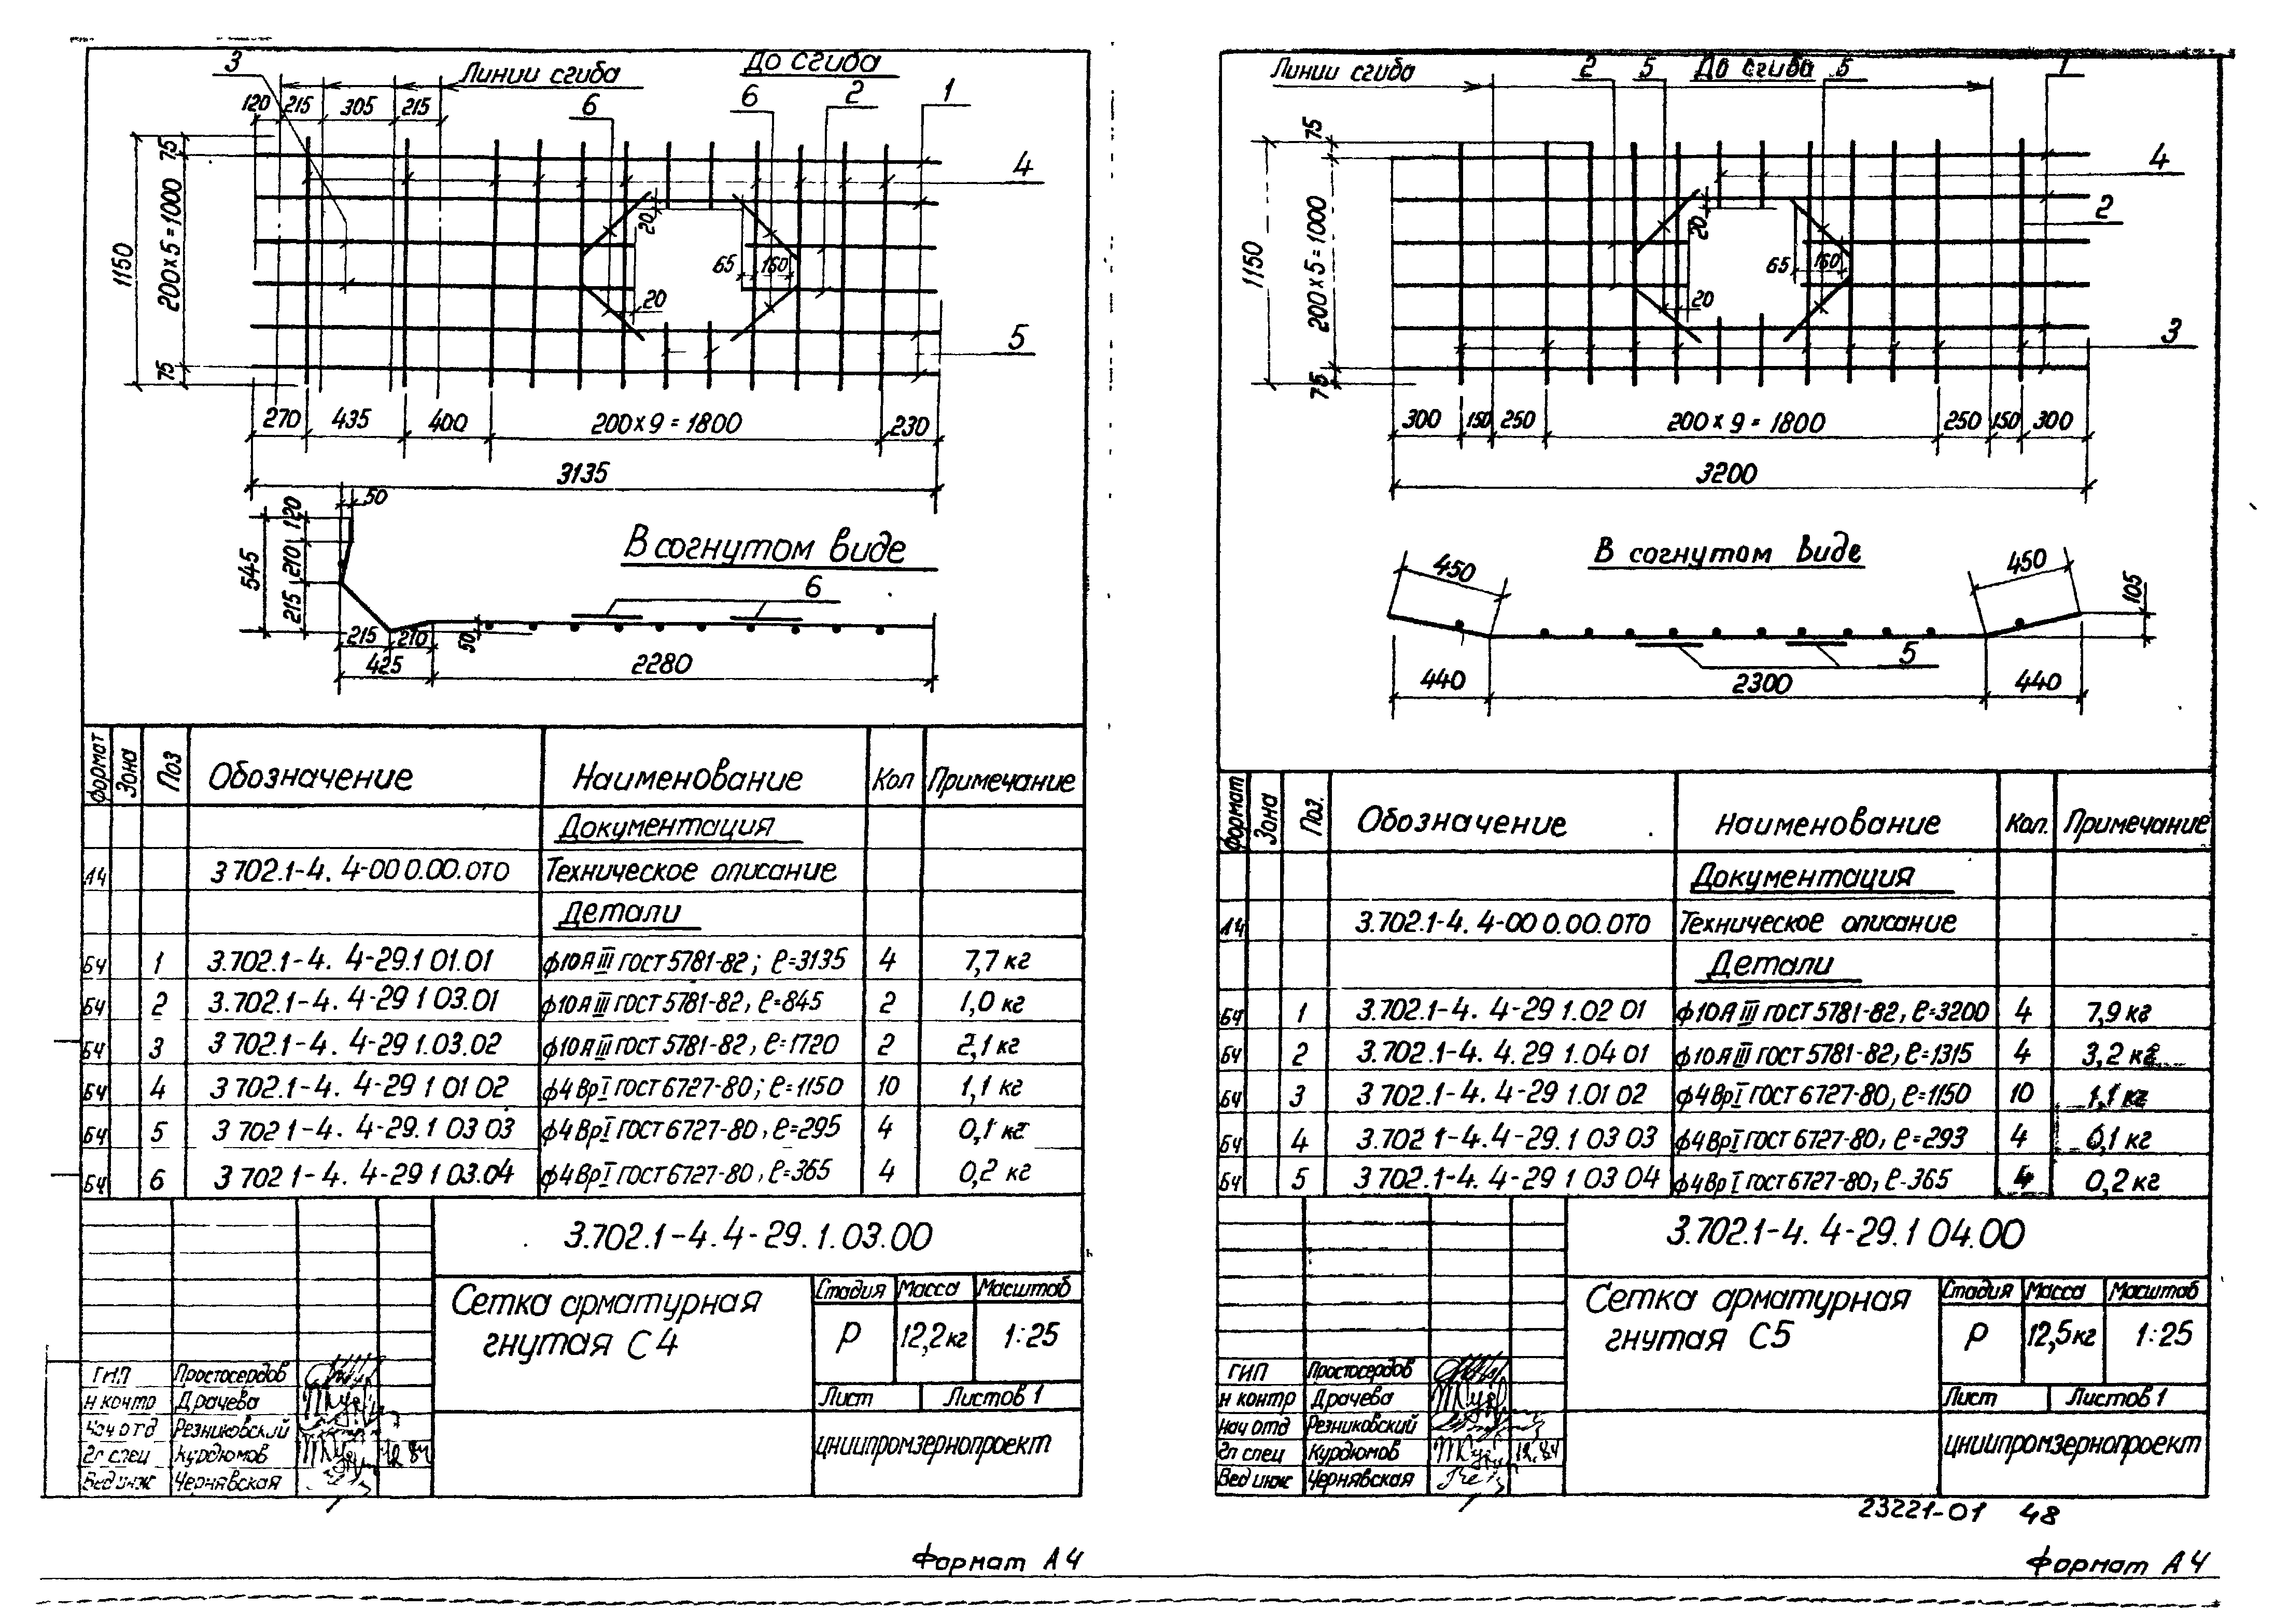 До сгиба
Линии сгиба
3
6
6
2
1
120
215
305
215
4
5
75
200×5=1000
75
1150
20
65
160
20
270
435
400
200×9=1800
230
3135
50
120
210
215
545
В согнутом виде
6
215
210
50
425
2280
Формат
Зона
Поз
Обозначение
Наименование
Кол
Примечание
Документация
А4 3 702.1-4. 4-00 0.00.0ТО Техническое описание
Детали
БЧ 1 3.702.1-4. 4-29.1 01.01 ф10АIII ГОСТ 5781-82; ℓ=3135 4 7,7 кг
БЧ 2 3.702.1-4. 4-29 1 03.01 ф10АIII ГОСТ 5781-82, ℓ=845 2 1,0 кг
БЧ 3 3 702.1-4. 4-29 1.03.02 ф10АIII ГОСТ 5781-82, ℓ=1720 2 2,1 кг
БЧ 4 3 702.1-4. 4-29 1 01 02 ф4ВрI ГОСТ 6727-80; ℓ=1150 10 1,1 кг
БЧ 5 3 702 1-4. 4-29.1 03 03 ф4ВрI ГОСТ 6727-80, ℓ=295 4 0,1 кг
БЧ 6 3 702 1-4. 4-29 1 03.04 ф4ВрI ГОСТ 6727-80, ℓ=365 4 0,2 кг
3.702.1-4.4-29.1.03.00
Сетка арматурная
гнутая С4
Стадия Масса Масштаб
Р 12,2кг 1:25
Лист Листов 1
ЦНИИПРОМЗЕРНОПРОЕКТ
ГИП Простосердов
Н контр Драчева
Нач отд Резниковский
Гл спец Курдюмов 12 84
Вед инж Чернявская
Формат А4
Линии сгиба
2
5
До сгиба
5
1
4
2
3
75
200×5=1000
75
1150
20
65
160
20
300
150
250
200×9=1800
250
150
300
3200
В согнутом виде
450
450
105
5
440
2300
440
Формат
Зона
Поз.
Обозначение
Наименование
Кол.
Примечание
Документация
А4 3.702.1-4. 4-00 0.00.0ТО Техническое описание
Детали
БЧ 1 3.702.1-4. 4-29 1.02 01 ф10АIII ГОСТ 5781-82, ℓ=3200 4 7,9 кг
БЧ 2 3.702.1-4. 4.29 1.04 01 ф10АIII ГОСТ 5781-82, ℓ=1315 4 3,2 кг
БЧ 3 3 702.1-4. 4-29 1.01 02 ф4ВрI ГОСТ 6727-80, ℓ=1150 10 1,1 кг
БЧ 4 3.702 1-4.4-29.1 03 03 ф4ВрI ГОСТ 6727-80, ℓ=293 4 0,1 кг
БЧ 5 3 702.1-4. 4-29 1 03 04 ф4ВрI ГОСТ 6727-80, ℓ-365 4 0,2 кг
3.702.1-4. 4-29.1 04.00
Сетка арматурная
гнутая С5
Стадия Масса Масштаб
Р 12,5кг 1:25
Лист Листов 1
ЦНИИПРОМЗЕРНОПРОЕКТ
ГИП Простосердов
Н контр Драчева
Нач отд Резниковский
Гл спец Курдюмов 12.84
Вед инж Чернявская
23221-01 48
Формат А4